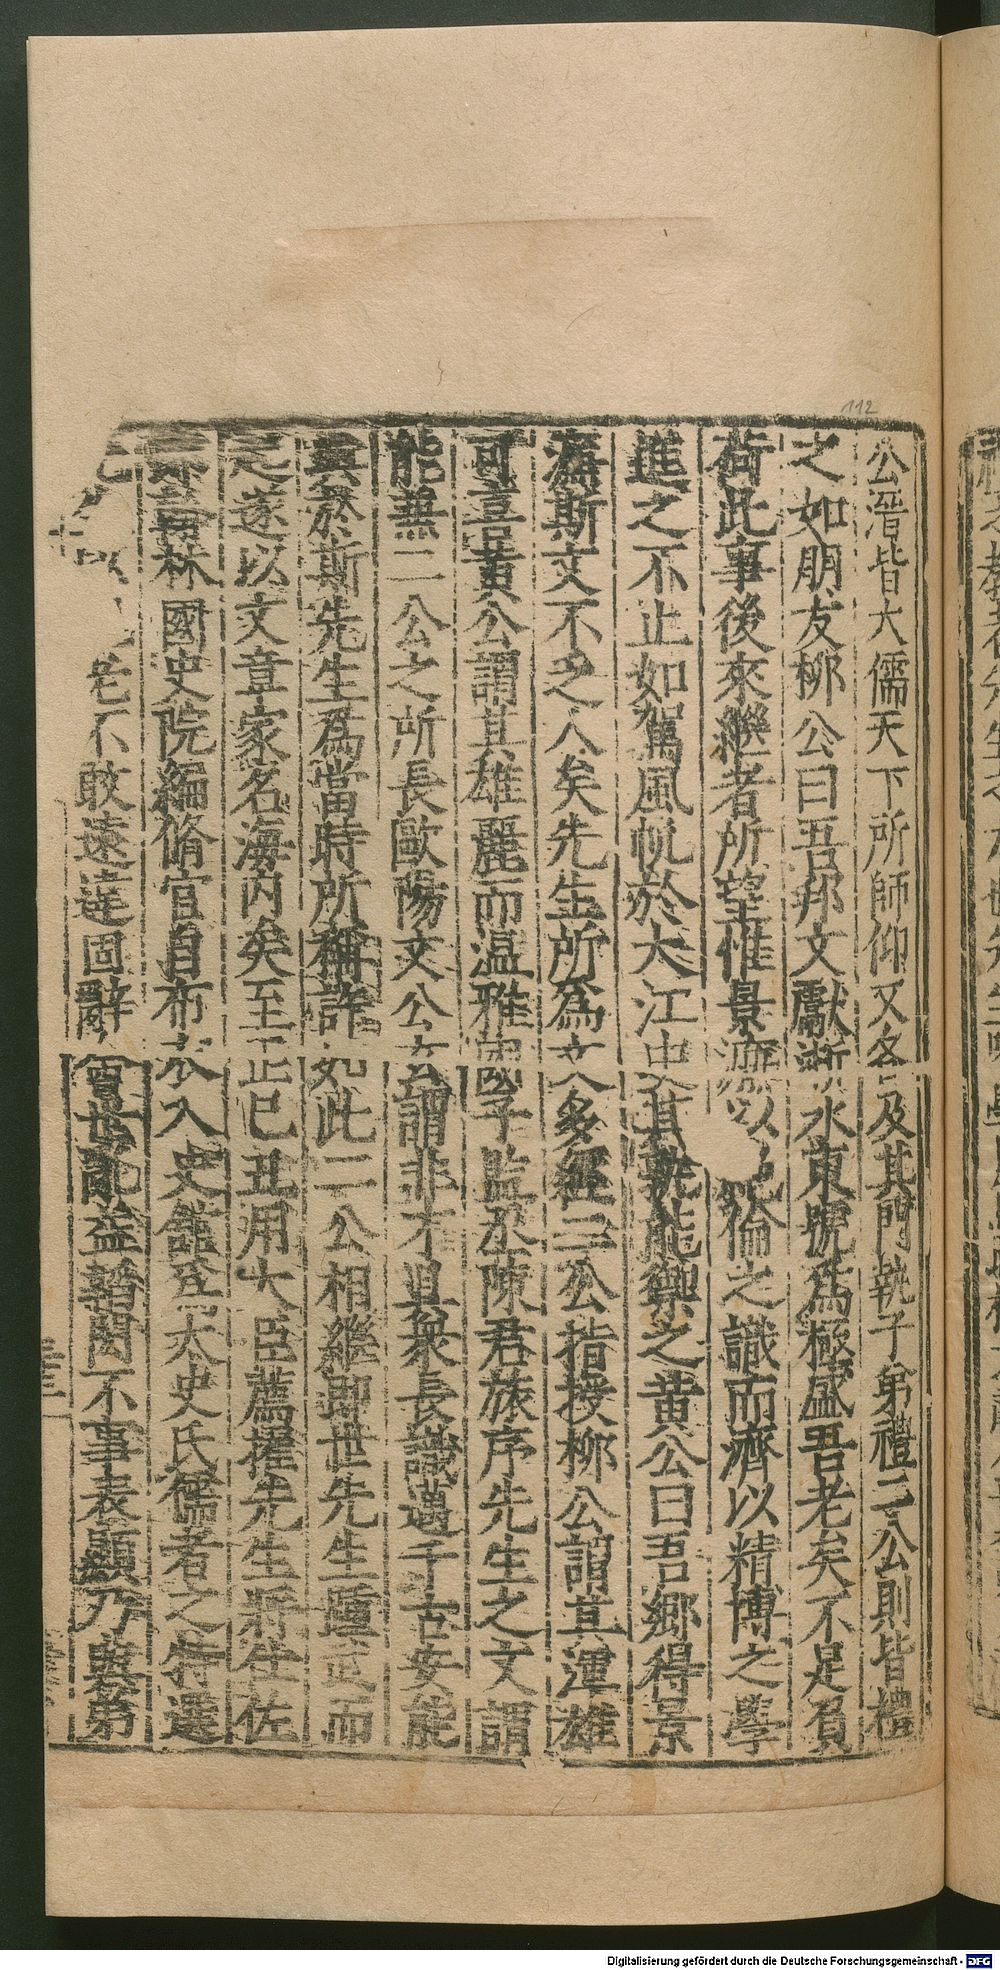 112
公溍皆大儒天下所師仰又各及其門執子弟禮二公則皆禮
之如朋友柳公曰吾邦文獻浙水東號爲極盛吾老矣不足負
荷此事後來繼者所望惟景濂以倫之識而濟以精博之學
進之不止如駕風帆於大江中其孰能禦之黄公曰吾鄉得景
濂斯文不乏人矣先生所爲文多經二公指授柳公謂其渾雄
可喜黄公謂其雄麗而温雅國子監丞陳君旅序先生之文謂
能兼二公之所長歐陽文公玄謂非才具衆長識邁千古安能
與於斯先生爲當時所稱許如此二公相繼即世先生踵武而
起遂以文章家名海内矣至正己丑用大臣薦擢先生將仕佐
郎翰林國史院編脩官自布衣入史館爲太史氏儒者之特選
先 以 老不敢遠違固辭會世亂益韜閟不事表顯乃與第
Digitalisierung gefördert durch die Deutsche Forschungsgemeinschaft - DFG